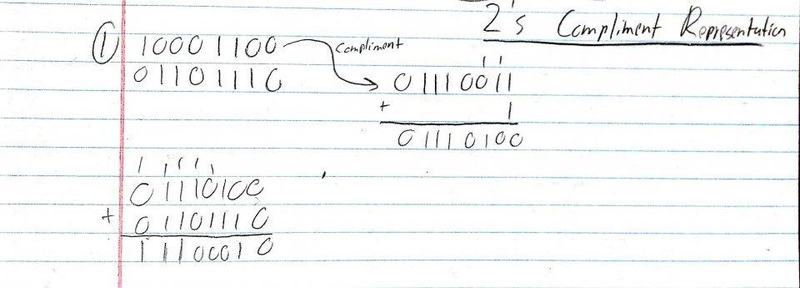 2's Compliment Representation
① 10001100 Compliment
01101110
1 1
01110011
+ 1
01110100
1 1 1 1 1
01110100
+ 01101110
11100010